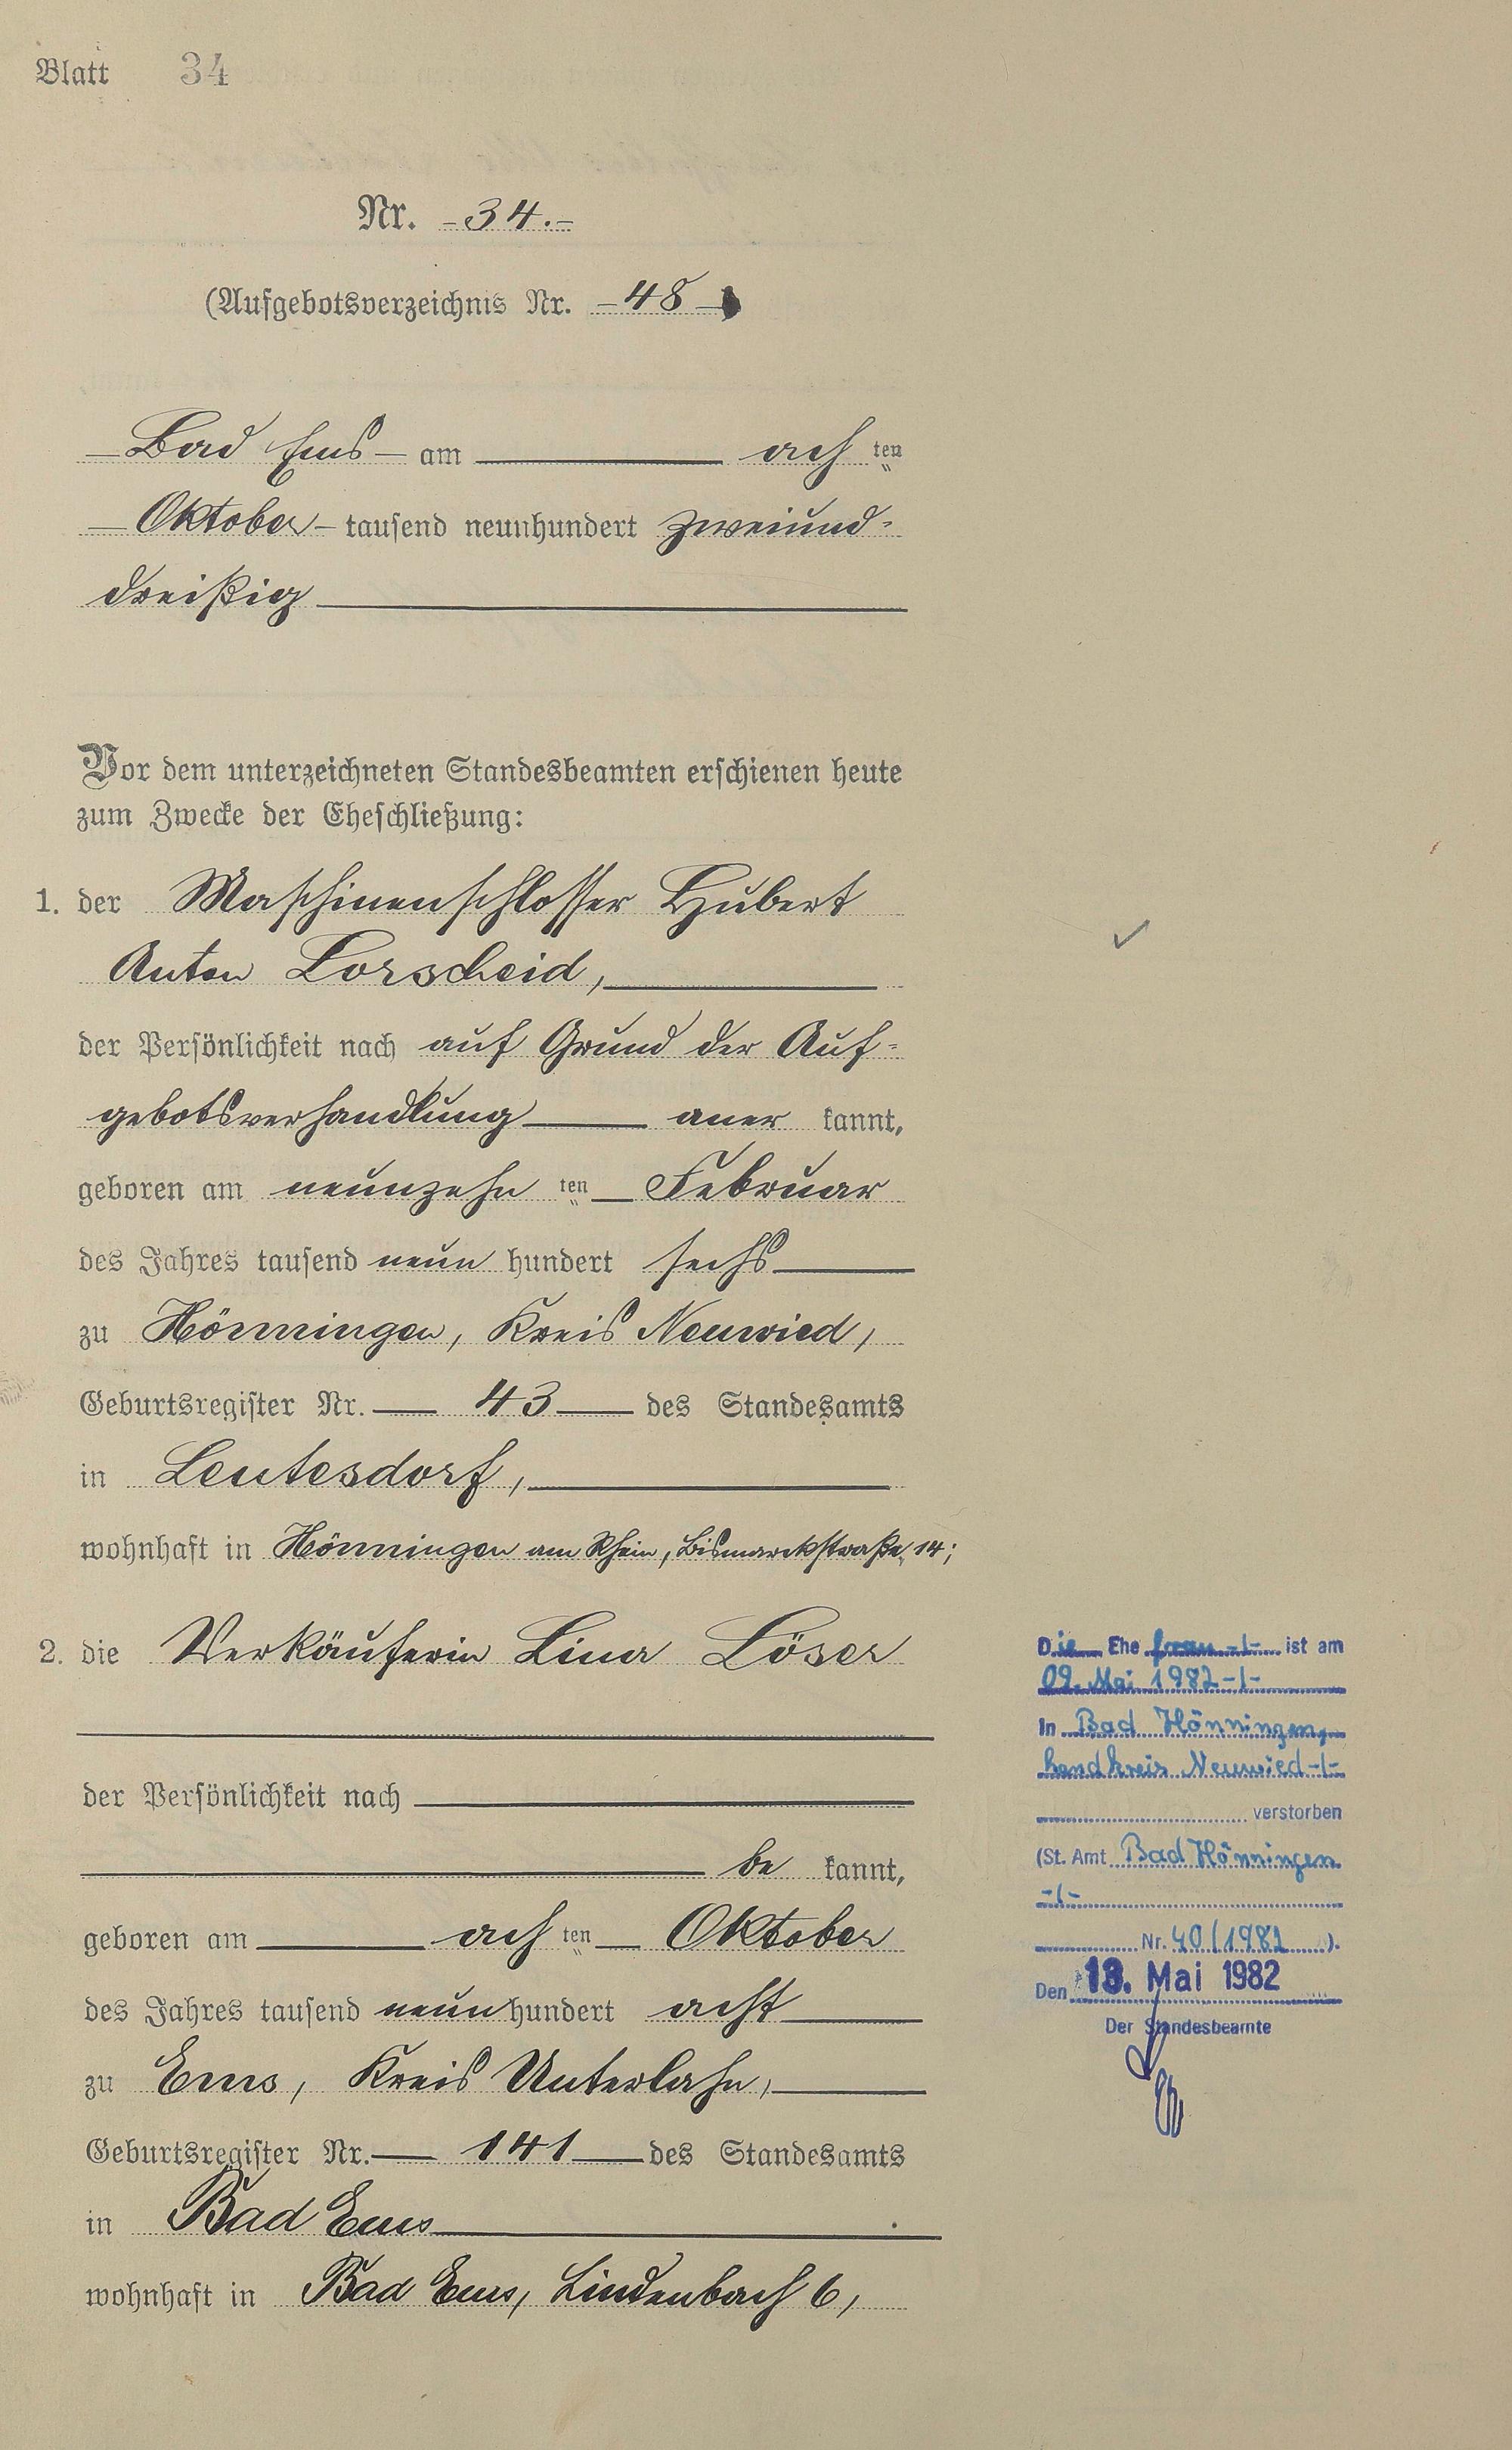 Blatt 34
Nr. -34.-
(Aufgebotsverzeichnis Nr. -48-)
- Bad Ems - am ach ten
- Oktober - tausend neunhundert zweiund-
dreißig
Vor dem unterzeichneten Standesbeamten erschienen heute
zum Zwecke der Eheschließung:
1. der Maschinenschlosser Hubert
Anton Lorscheid,
der Persönlichkeit nach auf Grund der Auf-
gebotsverhandlung aner kannt,
geboren am neunzehn ten Februar
des Jahres tausend neun hundert sechs
zu Hönningen, Kreis Neuwied,
Geburtsregister Nr. 43 des Standesamts
in Leutesdorf,
wohnhaft in Hönningen am Rhein, Bismarckstraße 14;
2. die Verkäuferin Lina Löser
der Persönlichkeit nach
be kannt,
geboren am ach ten Oktober
des Jahres tausend neun hundert acht
zu Ems, Kreis Unterlahn,
Geburtsregister Nr. 141 des Standesamts
in Bad Ems
wohnhaft in Bad Ems, Lindenbach 6,
Die Ehe frau -/- ist am
09. Mai 1982 -/-
in Bad Hönningen,
Landkreis Neuwied -/-
verstorben
(St. Amt Bad Hönningen
-/-
Nr. 40/1982).
Den 13. Mai 1982
Der Standesbeamte